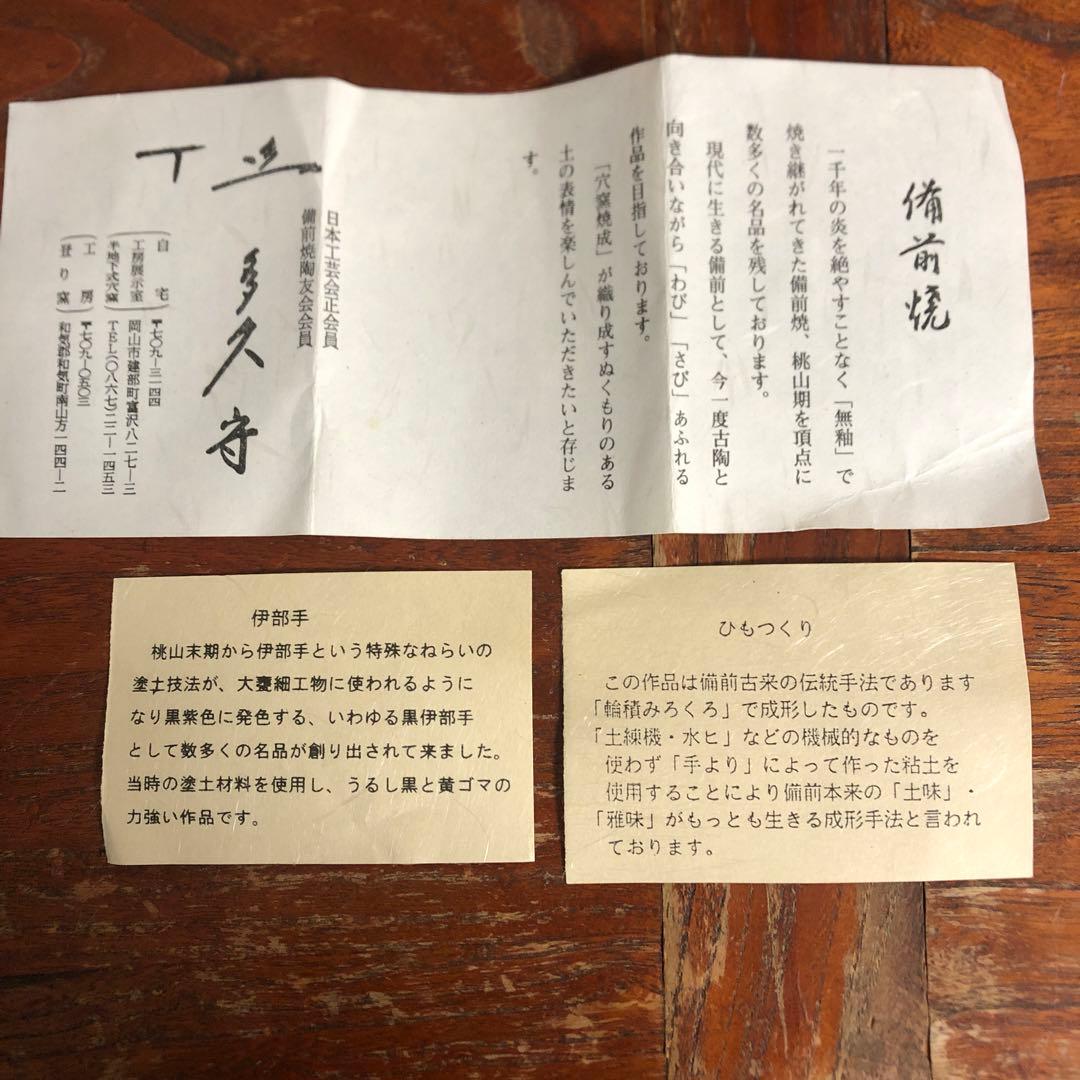 備前焼
一千年の炎を絶やすことなく「無釉」で
焼き継がれてきた備前焼、桃山期を頂点に
数多くの名品を残しております。
現代に生きる備前として、今一度古陶と
向き合いながら「わび」「さび」あふれる
作品を目指しております。
「穴窯焼成」が織り成すぬくもりのある
土の表情を楽しんでいただきたいと存じま
す。
日本工芸会正会員
備前焼陶友会会員
多久守
自宅
工房展示室
半地下式穴窯
〒七〇九―三一四四
岡山市建部町富沢八二七―三
TEL(〇八六七)二二―一四五三
工房
登り窯
〒七〇九―〇五〇三
和気郡和気町南山方一四四―二
伊部手
桃山末期から伊部手という特殊なねらいの
塗土技法が、大甕細工物に使われるように
なり黒紫色に発色する、いわゆる黒伊部手
として数多くの名品が創り出されて来ました。
当時の塗土材料を使用し、うるし黒と黄ゴマの
力強い作品です。
ひもつくり
この作品は備前古来の伝統手法であります
「輪積みろくろ」で成形したものです。
「土練機・水ヒ」などの機械的なものを
使わず「手より」によって作った粘土を
使用することにより備前本来の「土味」・
「雅味」がもっとも生きる成形手法と言われ
ております。